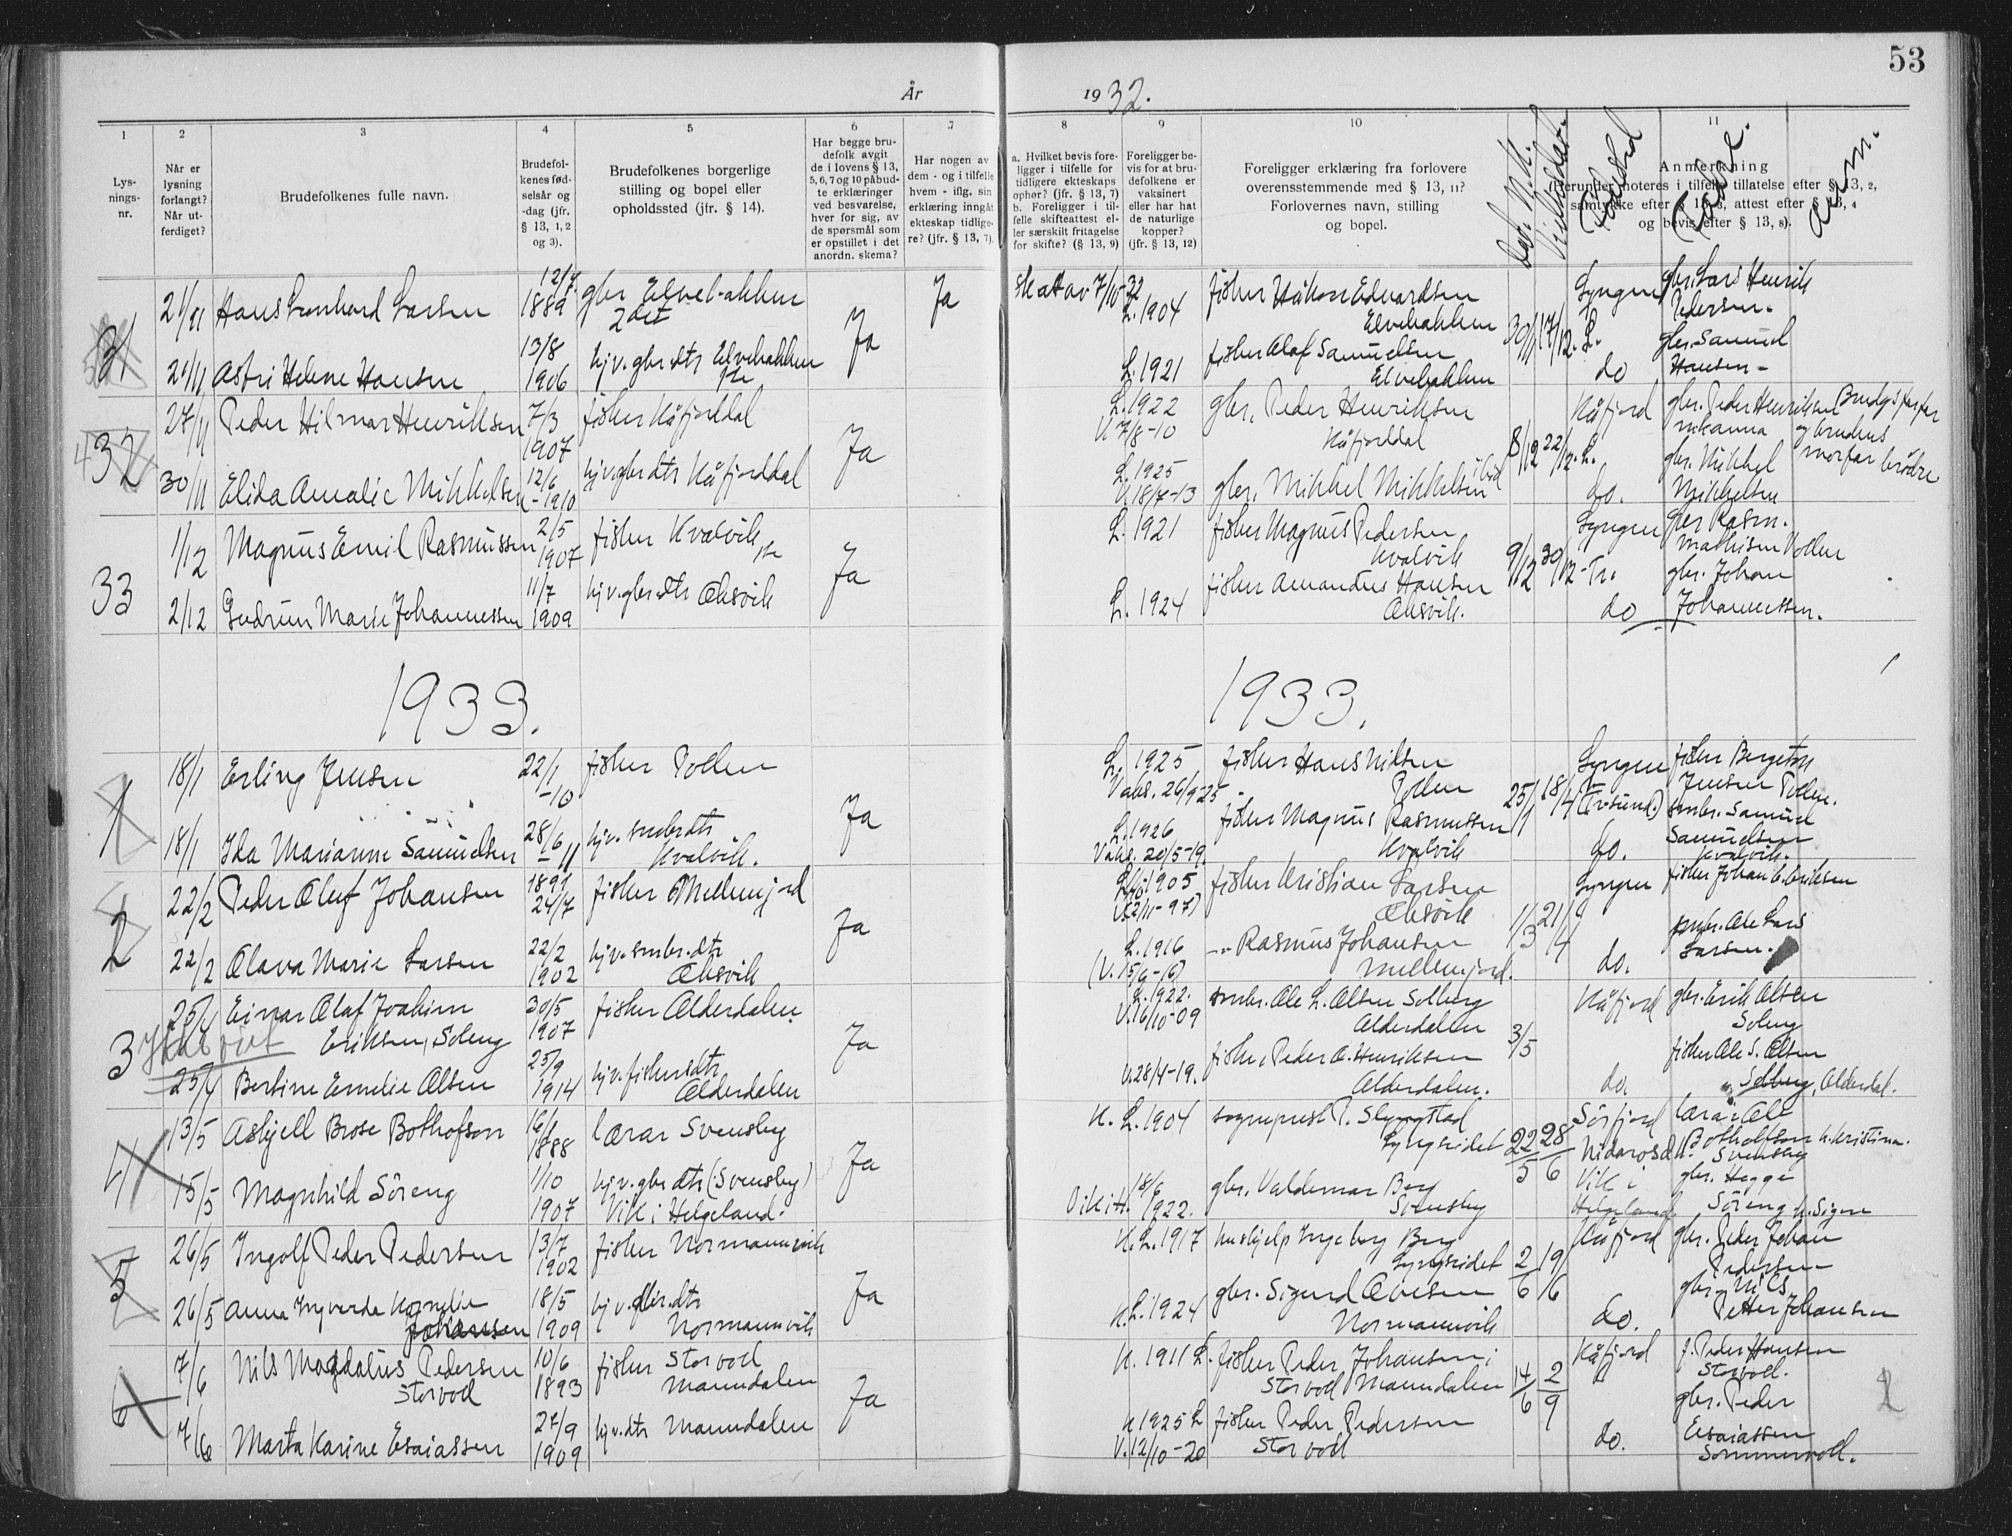 53
År
1932.
1
2
3
4
5
6
7
8
9
10
11
Lys-
nings-
nr.
Når er
lysning
forlangt?
Når ut-
ferdiget?
Brudefolkenes fulle navn.
Brudefol-
kenes fød-
selsår og
-dag (jfr.
§ 13, 1, 2
og 3).
Brudefolkenes borgerlige
stilling og bopel eller
opholdssted (jfr. § 14).
Har begge bru-
defolk avgit
de i lovens § 13,
5, 6, 7 og 10 påbud-
te erklæringer
ved besvarelse,
hver for sig, av
de spørsmål som
er opstillet i det
anordn. skema?
Har nogen av
dem - og i tilfelle
hvem - iflg. sin
erklæring inngått
ekteskap tidlige-
re? (jfr. § 13, 7).
a. Hvilket bevis fore-
ligger i tilfelle for
tidligere ekteskaps
ophør? (§ 13, 7)
b. Foreligger i til-
felle skifteattest el-
ler særskilt fritagelse
for skifte? (§ 13, 9)
Foreligger be-
vis for at bru-
defolkene er
vaksinert
eller har hat
de naturlige
kopper?
(jfr. § 13, 12)
Foreligger erklæring fra forlovere
overensstemmende med § 13, 11?
Forlovernes navn, stilling
og bopel.
Anmerkning
(Herunder noteres i tilfelle tillatelse efter § 13, 2,
samtykke efter § 13, 3, attest efter § 13, 4
og bevis efter § 13, 8).
Fødested
Fedre.
Anm.
31
21/11 Hans Leonhard Larsen 12/7 1889 gbr Elvebakken Ja skat av 7/10-32 L. 1904 fisker Håkon Edvardsen Lyngen gbr. Lars Henrik
2det Elvebakken 30/11 17/12. L. Pedersen.
21/11 Astri Helene Hansen 13/8 1906 hjv. gbr. dtr Elvebakken Ja L. 1921 fisker Olaf Samuelsen do gbr. Samuel
Elvebakken Hansen
32
27/11 Peder Hilmar Henriksen 7/3 1907 fisker Kåfjorddal Ja L. 1922 gbr. Peder Henriksen Kåfjord gbr. Peder Henriksen Brudgs farfar
V. 7/8-10 Kåfjorddal 8/12 22/12. L. og brudens
30/11 Elida Amalie Mikkelsen 12/6 -1910 hjv. gbr dtr Kåfjorddal L. 1925 gbr. Mikkel Mikkelsen do. gbr. Mikkel morfar brødre
V. 18/7-13 Mikkelsen
33
1/12 Magnus Emil Rasmussen 2/5 1907 fisker Kvalvik Ja L. 1921 fisker Magnus Pedersen Lyngen gbr Rasm.
Kvalvik 9/12 30/12-Tr. Mathisen Pollen
2/12 Gudrun Marie Johannessen 11/7 1909 hjv. gbr dtr Oksvik L. 1924 fisker Amandus Hansen do gbr. Johan
Oksvik. Johannessen.
1933.
1933.
1
18/1 Erling Jensen 22/1 -10 fisker Pollen Ja L. 1925 fisker Hans Nilsen Lyngen fisker Bergeton
Vaks. 26/9 25 Pollen 25/1 18/4 (Tr.sund.) Jensen Pollen.
18/1 Ida Marianne Samuelsen 28/6 -11 hjv. smbr dtr L. 1926 fisker Magnus Rasmussen do. smbr. Samuel
Kvalvik. Vaks. 20/5-19. Kvalvik Samuelsen
Kvalvik.
2
22/2 Peder Oluf Johansen 1891 24/7 fisker Mellemjord Ja L. 1905 fisker Kristian Larsen Lyngen fisker Johan E. Eriksen
V. (2/11-97) Oksvik 1/3 21/4
22/2 Olava Marie Larsen 22/2 1902 hjv. smbr. dtr L. 1916 -"- Rasmus Johansen do. smbr. Ole Lars
Oksvik (V. 15/6-16) Mellemjord. Larsen.
3
25/4 Einar Olaf Joakim 30/5 1907 fisker Olderdalen Ja L. 1922. smbr. Ole L. Olsen Solberg Kåfjord gbr. Erik Olsen
Eriksen, Soleng V. 16/10-09 Olderdalen 3/5 Soleng
25/4 Bertine Emelie Olsen 25/9 1914 hjv. fiskersdtr V. 28/4-19. fisker Peder A. Henriksen do. fisker Ole S. Olsen
Olderdalen Olderdalen. Solberg, Olderdal.
4
13/5 Asbjell Brose Bothofson 16/1 1888 lærar Svensby Ja K. L. 1904 sogneprest P. Slyngstad Sörfjord lærar Ole
Lyngseidet 22/5 28/6 Nidarosd. Botholfson h. Kristina.
Svensby
15/5 Magnhild Söreng 1/10 1907 hjv. gbr dtr (Svensby) 18/6 gbr. Valdemar Berg Vik i gbr. Hegge
Vik i Helgeland. Vik i H. 1922. Svensby Helgeland Söreng h. Signe
5
26/5 Ingolf Peder Pedersen 13/7 1902 fisker Normannvik Ja K. L. 1917 hushjelp Ingeborg Berg Kåfjord gbr. Peder Johan
Lyngseidet 2/6 19/6 Pedersen
26/5 Anna Ingverda Kornelie 18/5 1909 hjv. gbr. dtr K. L. 1924 gbr. Sigurd Ovesen do. gbr. Nils
Johansen Normannvik Normannvik Petter Johansen
6
7/6 Nils Magdalus Pedersen 10/6 1893 fisker Storvoll Ja K. 1911 L. fisker Peder Johansen Kåfjord f. Peder Hansen
Storvoll Manndalen Storvoll Manndalen 14/6 2/9 Storvoll.
7/6 Marta Karine Esaiassen 27/9 1909 hjv. dtr Manndalen K. 1925 L fisker Peder Pedersen do. gbr. Peder
V. 12/10-20 Storvoll Esaiassen
Sommervoll.